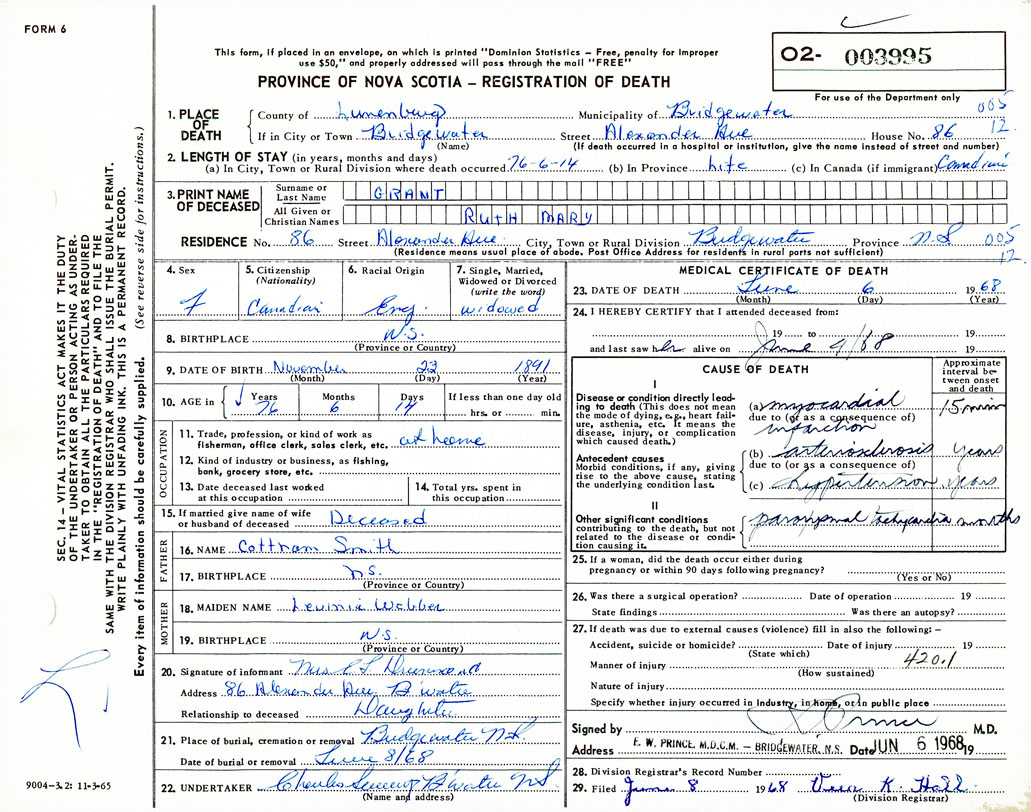 FORM 6
This form, if placed in an envelope, on which is printed "Dominion Statistics – Free, penalty for improper
use $50," and properly addressed will pass through the mail "FREE"
PROVINCE OF NOVA SCOTIA – REGISTRATION OF DEATH
O2- 003995
For use of the Department only
005
12.
1. PLACE OF DEATH
County of Lunenburg Municipality of Bridgewater
If in City or Town Bridgewater Street Alexander Ave House No. 86
(Name) (If death occurred in a hospital or institution, give the name instead of street and number)
2. LENGTH OF STAY (in years, months and days)
(a) In City, Town or Rural Division where death occurred 76-6-14 (b) In Province Life (c) In Canada (if immigrant) Canadian
3. PRINT NAME OF DECEASED
Surname or Last Name GRANT
All Given or Christian Names RUTH MARY
RESIDENCE No. 86 Street Alexander Ave. City, Town or Rural Division Bridgewater Province N.S 005
12.
(Residence means usual place of abode. Post Office Address for residents in rural parts not sufficient)
4. Sex F
5. Citizenship (Nationality) Canadian
6. Racial Origin Eng.
7. Single, Married, Widowed or Divorced (write the word) widowed
8. BIRTHPLACE N.S.
(Province or Country)
9. DATE OF BIRTH November 23 1891
(Month) (Day) (Year)
10. AGE in Years 76 Months 6 Days 14 If less than one day old hrs. or min.
OCCUPATION
11. Trade, profession, or kind of work as fisherman, office clerk, sales clerk, etc. at home
12. Kind of industry or business, as fishing, bank, grocery store, etc.
13. Date deceased last worked at this occupation
14. Total yrs. spent in this occupation
15. If married give name of wife or husband of deceased Deceased
FATHER
16. NAME Cottnam Smith
17. BIRTHPLACE N.S.
(Province or Country)
MOTHER
18. MAIDEN NAME Webber
19. BIRTHPLACE N.S.
(Province or Country)
20. Signature of informant Mrs
Address 86 Alexander Ave, B'water
Relationship to deceased Daughter
21. Place of burial, cremation or removal Bridgewater N.S.
Date of burial or removal June 8/68
22. UNDERTAKER Charles B'water NS
(Name and address)
MEDICAL CERTIFICATE OF DEATH
23. DATE OF DEATH June 6 1968
(Month) (Day) (Year)
24. I HEREBY CERTIFY that I attended deceased from:
19 to 19
and last saw her alive on June 4/68 19
CAUSE OF DEATH
Approximate interval between onset and death
I
Disease or condition directly leading to death (This does not mean the mode of dying, e.g., heart failure, asthenia, etc. It means the disease, injury, or complication which caused death.)
(a) myocardial infarction 15 min
due to (or as a consequence of)
Antecedent causes
Morbid conditions, if any, giving rise to the above cause, stating the underlying condition last.
(b) arteriosclerosis years
due to (or as a consequence of)
(c) hypertension years
II
Other significant conditions contributing to the death, but not related to the disease or condition causing it.
paroxysmal tachycardia months
25. If a woman, did the death occur either during pregnancy or within 90 days following pregnancy?
(Yes or No)
26. Was there a surgical operation? Date of operation 19
State findings Was there an autopsy?
27. If death was due to external causes (violence) fill in also the following: –
Accident, suicide or homicide? Date of injury 19
(State which)
420.1
Manner of injury
(How sustained)
Nature of injury
Specify whether injury occurred in industry, in home, or in public place
Signed by Prince M.D.
Address E. W. PRINCE, M.D.C.M. – BRIDGEWATER, N.S. Date JUN 6 1968 19
28. Division Registrar's Record Number
29. Filed June 8 1968 K. Hall
(Division Registrar)
SEC. 14 – VITAL STATISTICS ACT MAKES IT THE DUTY
OF THE UNDERTAKER OR PERSON ACTING AS UNDER-
TAKER TO OBTAIN ALL THE PARTICULARS REQUIRED
IN THE "REGISTRATION OF DEATH" AND TO FILE THE
SAME WITH THE DIVISION REGISTRAR WHO SHALL ISSUE THE BURIAL PERMIT.
WRITE PLAINLY WITH UNFADING INK. THIS IS A PERMANENT RECORD.
Every item of information should be carefully supplied. (See reverse side for instructions.)
9004-3.2: 11-3-65